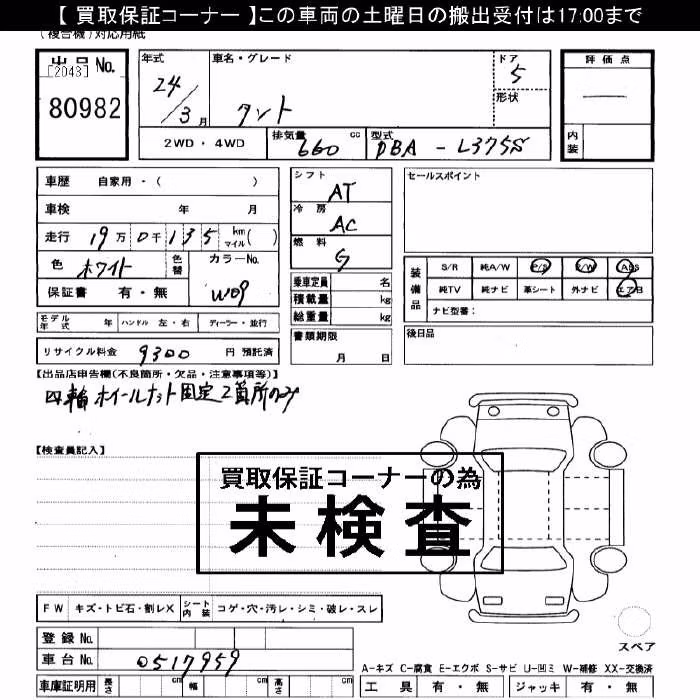 【 買取保証コーナー 】この車両の土曜日の搬出受付は17:00まで
(複合機)対応用紙
出品No.
[2043]
80982
年式
24
/3月
車名・グレード
タント
ドア
5
形状
2WD・4WD
排気量 660 cc
型式 DBA - L375S
評価点
内装
車歴 自家用・( )
車検 年 月
走行 19万0千135 km マイル( )
色 ホワイト 色替
カラーNo.
W09
保証書 有・無
モデル年式 年 ハンドル 左・右 ディーラー・並行
リサイクル料金 9300 円 預託済
シフト
AT
冷房
AC
燃料
G
乗車定員 名
積載量 kg
総重量 kg
書類期限
月 日
セールスポイント
装備品
S/R 純A/W P/S P/W ABS
純TV 純ナビ 革シート 外ナビ エアB
ナビ型番:
後日品
【出品店申告欄(不良箇所・欠品・注意事項等)】
四輪ホイールナット固定2箇所のみ
【検査員記入】
買取保証コーナーの為
未検査
FW キズ・トビ石・割レX
シート内装 コゲ・穴・汚レ・シミ・破レ・スレ
登録No.
車台No. 0517959
車庫証明用 長さ cm 幅 cm 高さ cm
スペア
A-キズ C-腐食 E-エクボ S-サビ U-凹ミ W-補修 XX-交換済
工具 有・無 ジャッキ 有・無